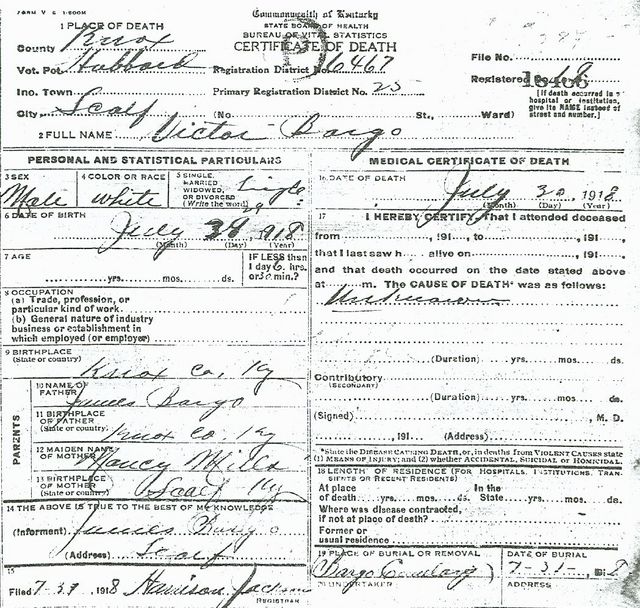 FORM V S 1-500M
Commonwealth of Kentucky
STATE BOARD OF HEALTH
BUREAU OF VITAL STATISTICS
CERTIFICATE OF DEATH
1 PLACE OF DEATH
County Knox
Vot. Pct. Hubbard Registration District No. 6467 File No.
Inc. Town Primary Registration District No. 25 Registered No. 18
City Scalf (No. St., Ward)
[If death occurred in a hospital or institution, give its NAME instead of street and number.]
2 FULL NAME Victor Bargo
PERSONAL AND STATISTICAL PARTICULARS
3 SEX Male
4 COLOR OR RACE white
5 SINGLE, MARRIED WIDOWED, OR DIVORCED (Write the word) Single
6 DATE OF BIRTH July 29, 1918
(Month) (Day) (Year)
7 AGE yrs. mos. ds.
IF LESS than 1 day 6 hrs. or 30 min.?
8 OCCUPATION
(a) Trade, profession, or
particular kind of work.
(b) General nature of industry
business or establishment in
which employed (or employer)
9 BIRTHPLACE
(State or country) Knox Co, Ky
PARENTS
10 NAME OF FATHER James Bargo
11 BIRTHPLACE OF FATHER (State or country) Knox Co Ky
12 MAIDEN NAME OF MOTHER Nancy Mills
13 BIRTHPLACE OF MOTHER (State or country) Scalf Ky
14 THE ABOVE IS TRUE TO THE BEST OF MY KNOWLEDGE
(Informent) James Bargo
(Address) Scalf
15
Filed 7-31 1918 Harrison Jackson
REGISTRAR
MEDICAL CERTIFICATE OF DEATH
16 DATE OF DEATH
July 30, 1918
(Month) (Day) (Year)
17 I HEREBY CERTIFY, That I attended deceased
from , 191 , to , 191 ,
that I last saw h alive on , 191 ,
and that death occurred on the date stated above
at m. The CAUSE OF DEATH* was as follows:
Unknown
(Duration) yrs. mos. ds.
Contributory
(SECONDARY)
(Duration) yrs. mos. ds.
(Signed) M. D.
, 191 (Address)
*State the DISEASE CAUSING DEATH, or, in deaths from VIOLENT CAUSES state
(1) MEANS OF INJURY; and (2) whether ACCIDENTAL, SUICIDAL or HOMICIDAL.
18 LENGTH OF RESIDENCE (FOR HOSPITALS, INSTITUTIONS, TRANSIENTS OR RECENT RESIDENTS)
At place In the
of death yrs. mos. ds. State yrs. mos. ds.
Where was disease contracted,
if not at place of death?
Former or
usual residence
19 PLACE OF BURIAL OR REMOVAL
Bargo Cemetary
DATE OF BURIAL
7-31-, 1918
20 UNDERTAKER
ADDRESS